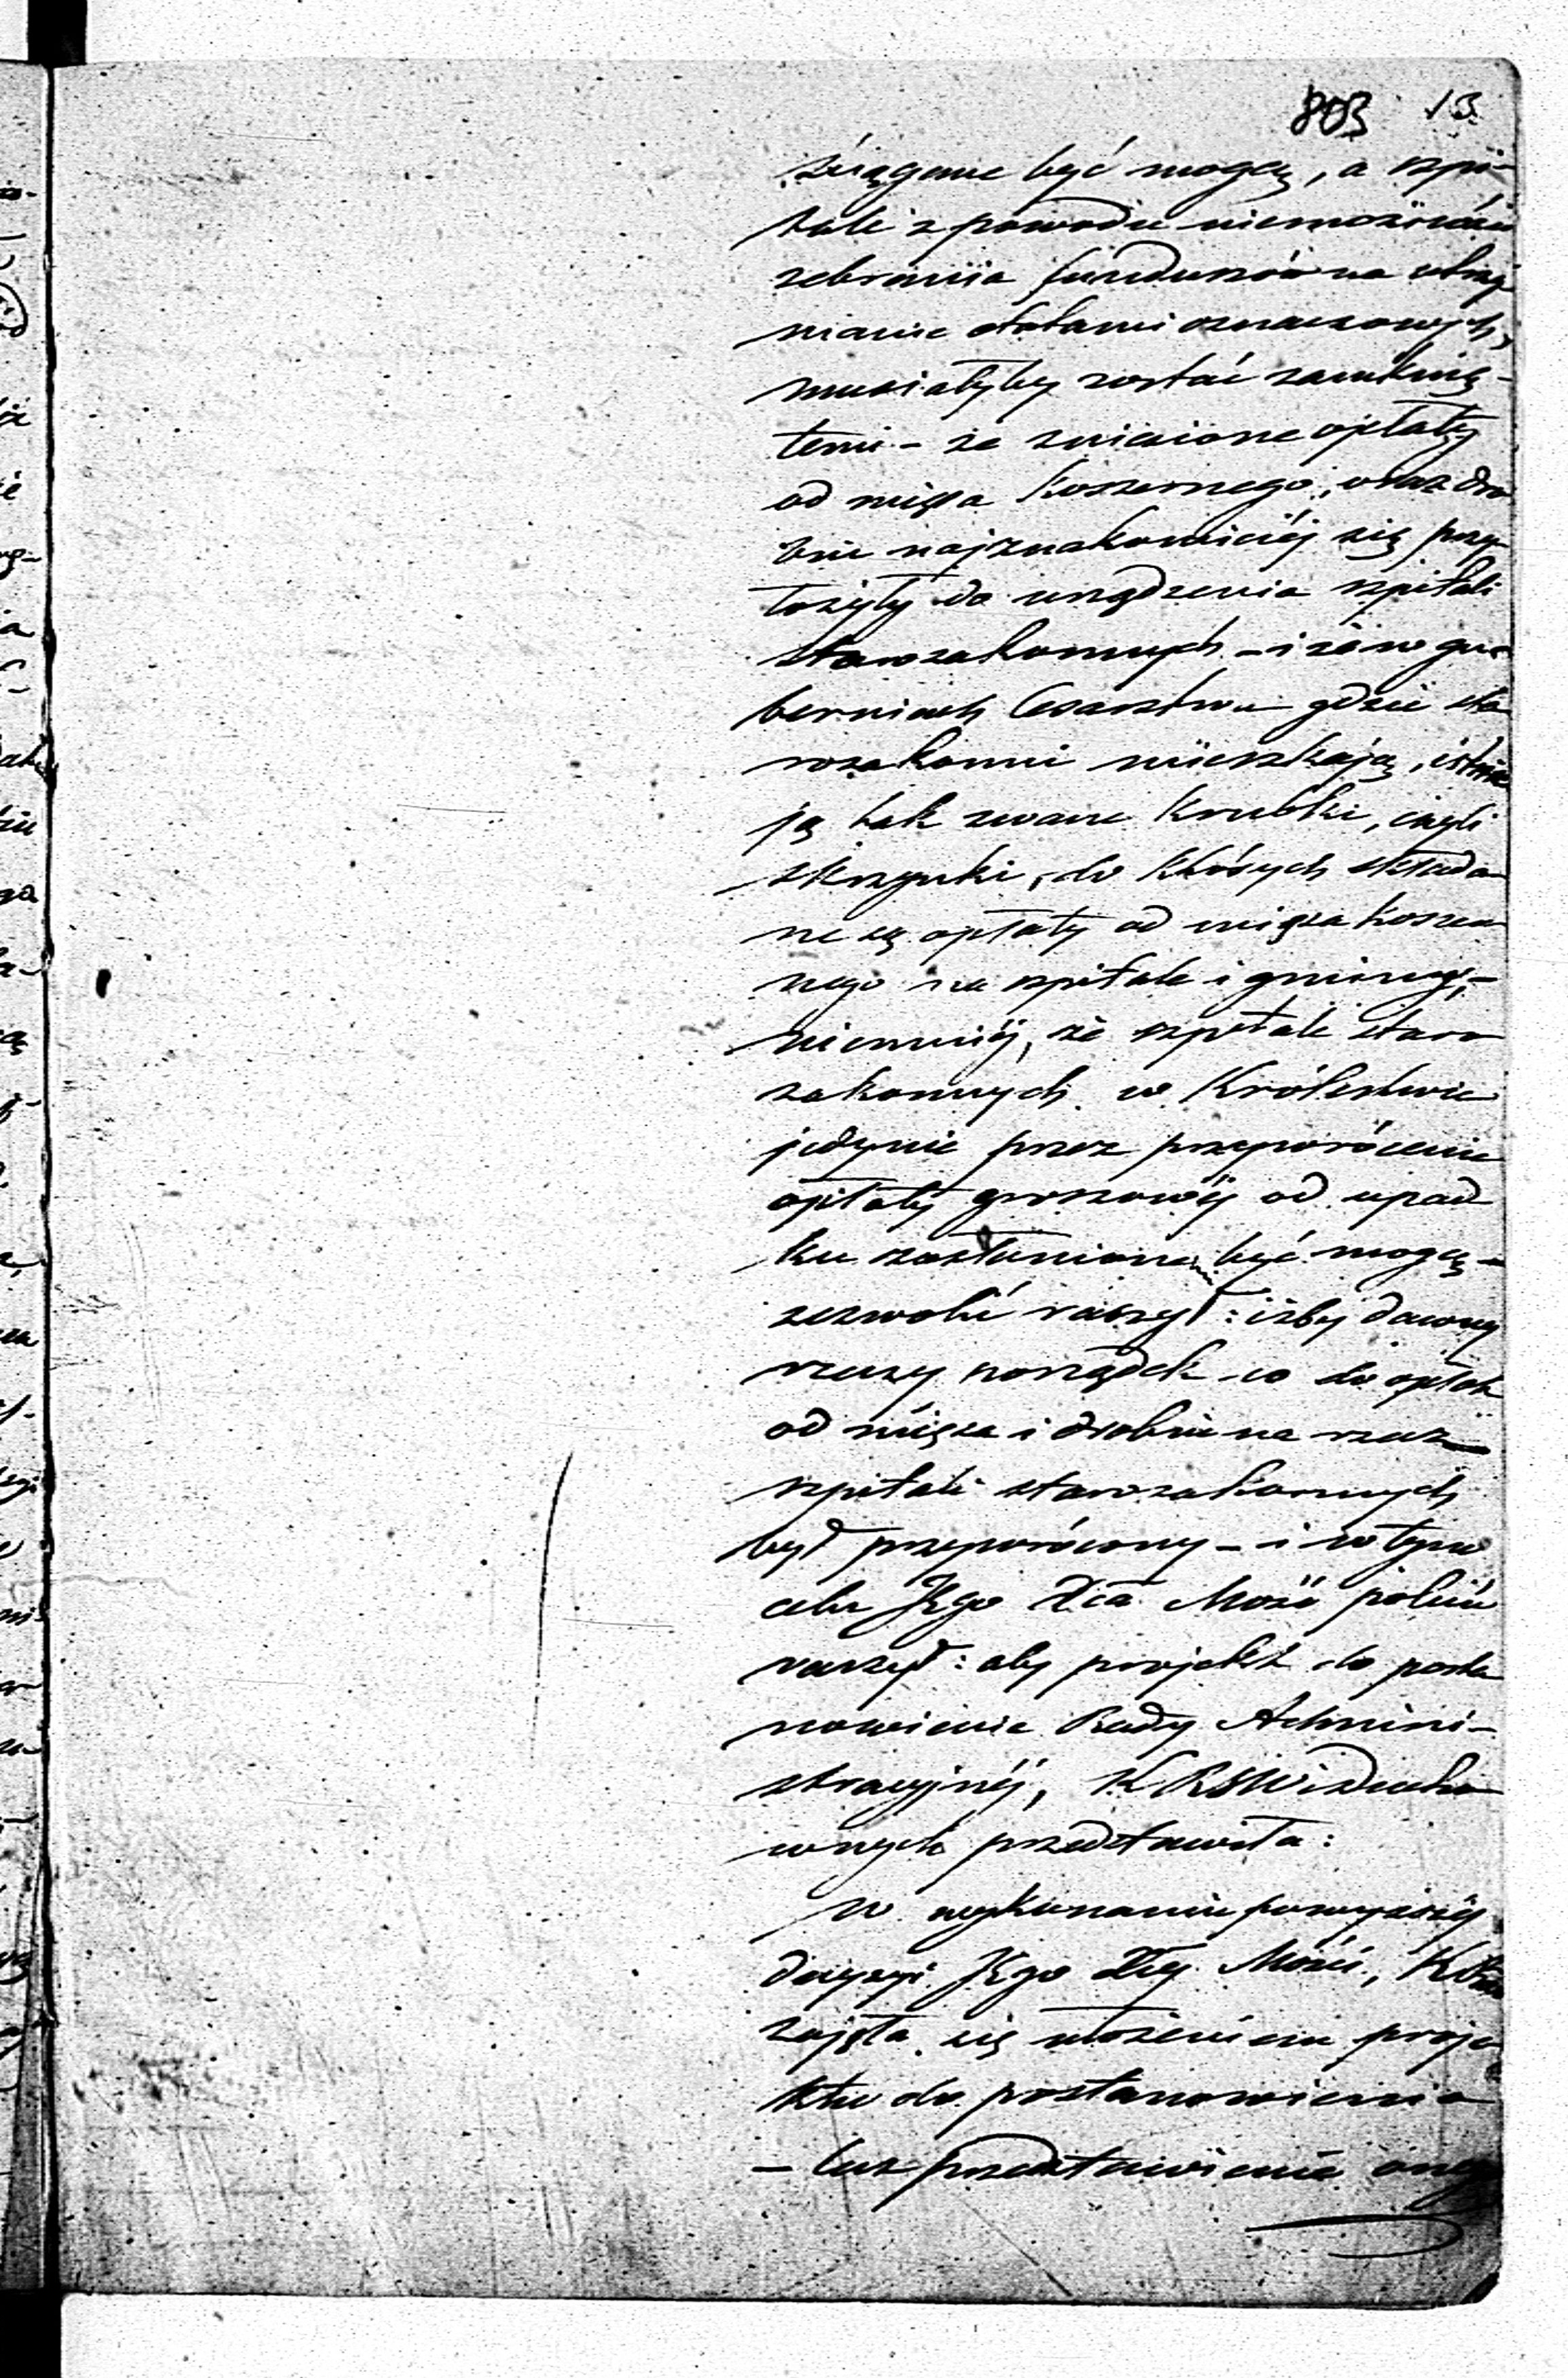 803 13
ściągane być mogą, a szpi-
tale z powodu niemożności
zebrania funduszów na utrzy
manie etatami oznaczonych,
musiałyby zostać zamknię-
temi – że zniesione opłaty
od mięsa koszernego, oraz dro
biu najznakomiciéj się przy
łożyły do urządzenia szpitali
starozakonnych – i że w gu-
berniach Cesarstwa gdzie sta
rozakonni mieszkają, istnie
ją tak zwane Krubki, czyli
skrzynki, do których składa
ne są opłaty od mięsa koszer
nego na szpitale i gminy, –
niemniéj, że szpitale staro
zakonnych w Królestwie
jedynie przez przywrócenie
opłaty groszowéj od upad
ku zasłonione być mogą –
zezwolić raczył: iżby dawny
rzeczy porządek co do opłat
od mięsa i drobiu na rzecz
szpitali starozakonnych
był przywrócony – i w tym
celu JKgo Mość polecić
raczył: aby projekt do posta
nowienia Rady Admini-
stracyjnéj, KRSWiDucho
wnych przedstawiła:
W wykonaniu powyższéj
decyzyi JKgo Mości,
zajęła się ułożeniem proje
ktu do postanowienia
– lecz przedstawienie